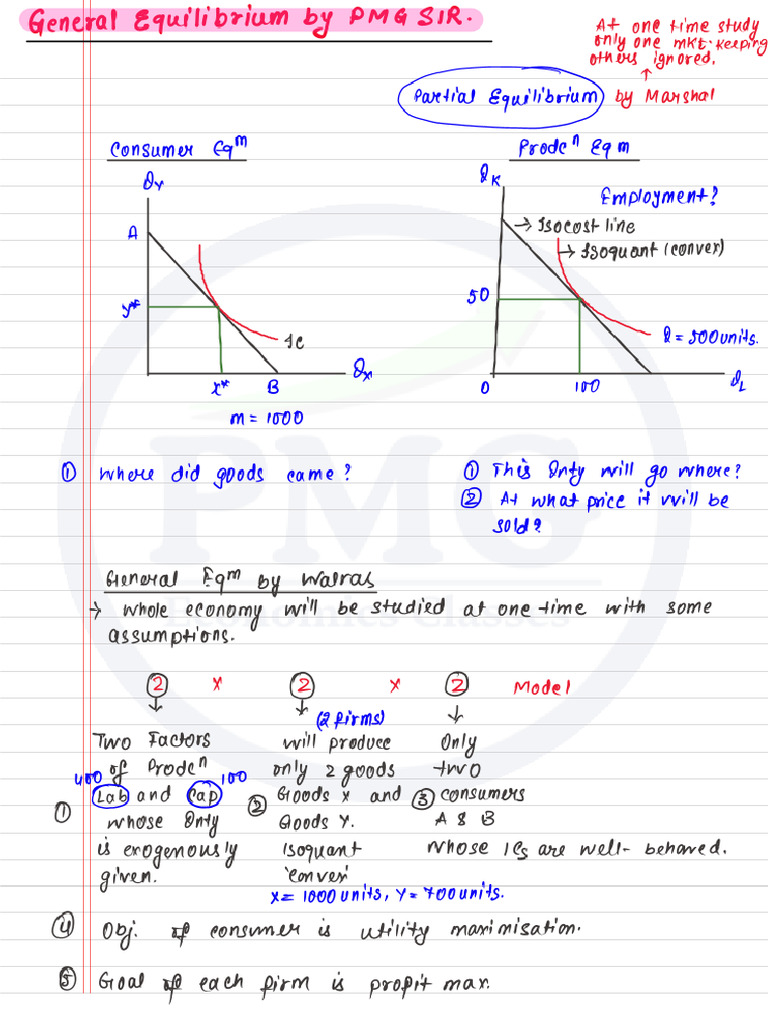 General Equilibrium by PMG SIR.
At one time study
only one mkt. keeping
others ignored.
Partial Equilibrium by Marshal
Consumer Eqᵐ
Prodcⁿ Eqm
Qy
A
y*
IC
x*
B
Qx
m = 1000
QK
Employment?
→ Isocost line
→ Isoquant (convex)
50
Q = 500 units.
0
100
QL
① Where did goods came?
① This Qnty will go where?
② At what price it will be
sold?
General Eqᵐ by Walras
→ Whole economy will be studied at one time with some
assumptions.
PMG
Economics Classes
2 x 2 x 2 Model
①
Two Factors
of Prodcⁿ
400 100
Lab and Cap
whose Qnty
is exogenously
given.
(2 firms)
will produce
only 2 goods
② Goods X and
Goods Y.
Isoquant
'convex'
X = 1000 units, Y = 700 units.
Only
two
③ consumers
A & B
whose ICs are well-behaved.
④ Obj. of consumer is utility maximisation.
⑤ Goal of each firm is profit max.